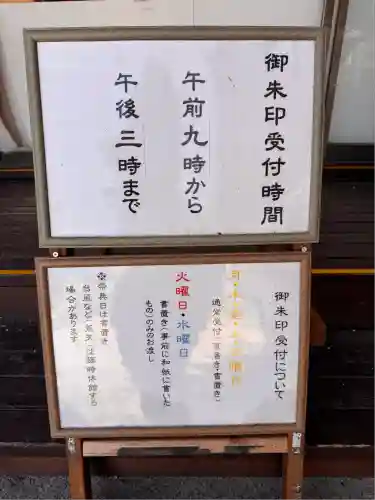 御朱印受付時間
午前九時から
午後三時まで
御朱印受付について
通常受付(直書き・書置き)
火曜日・水曜日
書置き(事前に和紙に書いた
もの)のみのお渡し
※祭典日は書置き
台風など(荒天)は臨時休館する
場合があります